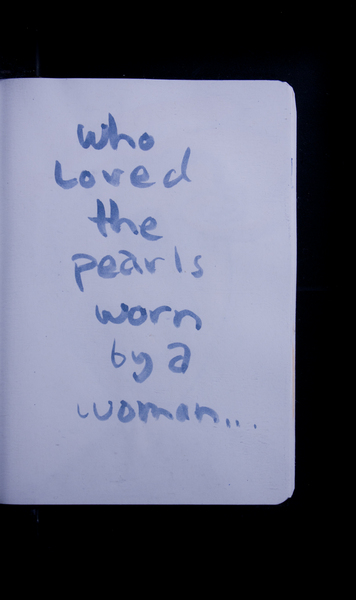 who
Loved
the
pearls
worn
by a
woman...